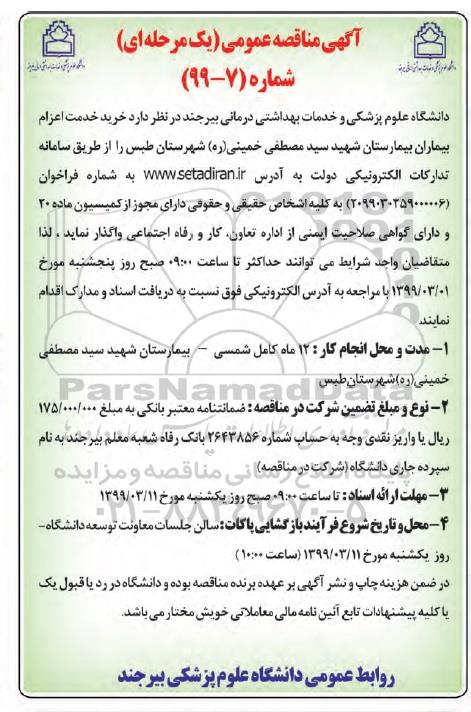 آگهی مناقصه عمومی (یک مرحله ای)
شماره (۷-۹۹)
دانشگاه علوم پزشکی و خدمات بهداشتی درمانی بیرجند در نظر دارد خرید خدمت اعزام
بیماران بیمارستان شهید سید مصطفی خمینی(ره) شهرستان طبس را از طریق سامانه
تدارکات الکترونیکی دولت به آدرس www.setadiran.ir به شماره فراخوان
(۲۰۹۹۰۳۰۳۵۹۰۰۰۰۰۶) به کلیه اشخاص حقیقی و حقوقی دارای مجوز از کمیسیون ماده ۲۰
و دارای گواهی صلاحیت ایمنی از اداره تعاون، کار و رفاه اجتماعی واگذار نماید ، لذا
متقاضیان واجد شرایط می توانند حداکثر تا ساعت ۰۹:۰۰ صبح روز پنجشنبه مورخ
۱۳۹۹/۰۳/۰۱ با مراجعه به آدرس الکترونیکی فوق نسبت به دریافت اسناد و مدارک اقدام
نمایند.
۱- مدت و محل انجام کار : ۱۲ ماه کامل شمسی - بیمارستان شهید سید مصطفی
خمینی(ره) شهرستان طبس
۲- نوع و مبلغ تضمین شرکت در مناقصه : ضمانتنامه معتبر بانکی به مبلغ ۱۷۵/۰۰۰/۰۰۰
ریال یا واریز نقدی وجه به حساب شماره ۲۶۴۳۸۵۶ بانک رفاه شعبه معلم بیرجند به نام
سپرده جاری دانشگاه (شرکت در مناقصه)
۳- مهلت ارائه اسناد : تا ساعت ۰۹:۰۰ صبح روز یکشنبه مورخ ۱۳۹۹/۰۳/۱۱
۴- محل و تاریخ شروع فرآیند بازگشایی پاکات : سالن جلسات معاونت توسعه دانشگاه-
روز یکشنبه مورخ ۱۳۹۹/۰۳/۱۱ (ساعت ۱۰:۰۰)
در ضمن هزینه چاپ و نشر آگهی بر عهده برنده مناقصه بوده و دانشگاه در رد یا قبول یک
یا کلیه پیشنهادات تابع آئین نامه مالی معاملاتی خویش مختار می باشد.
روابط عمومی دانشگاه علوم پزشکی بیرجند
ParsNamadData
پایگاه اطلاع رسانی مناقصه و مزایده
۰۲۱-۸۸۳۴۹۶۷۰-۵